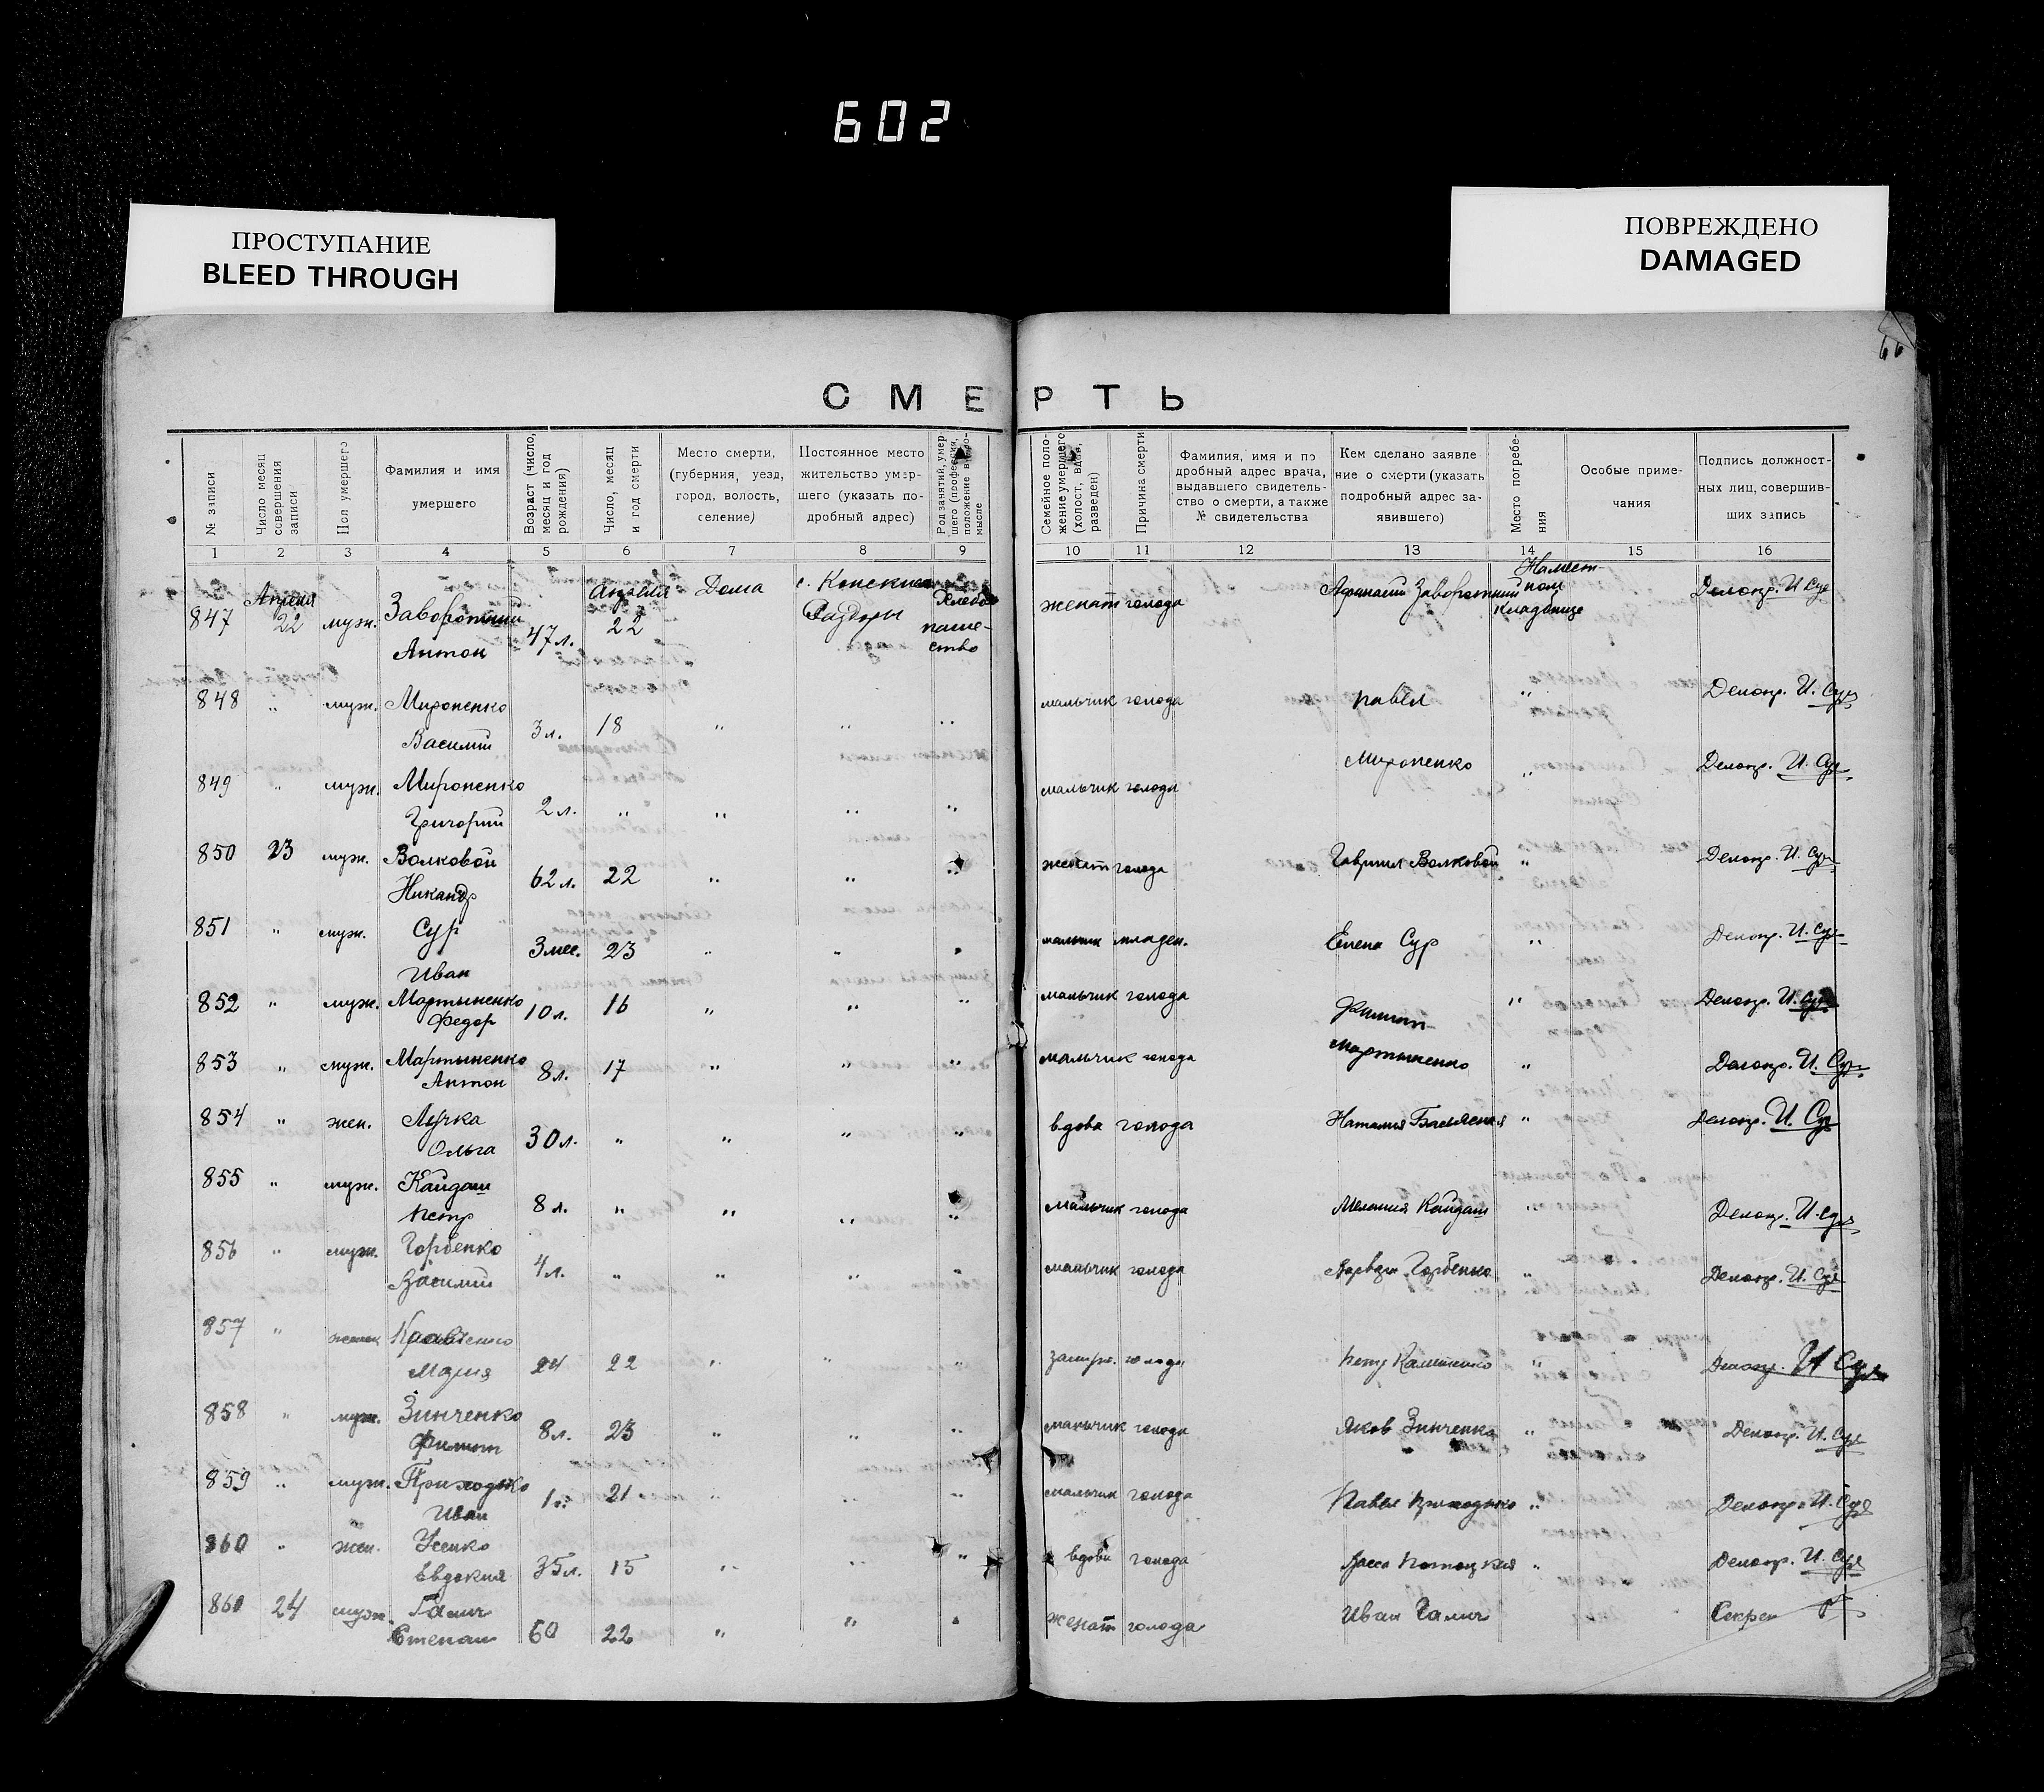 602
ПРОСТУПАНИЕ
BLEED THROUGH
ПОВРЕЖДЕНО
DAMAGED
66
СМЕРТЬ
№ записи
Число месяц совершения записи
Пол умершего
Фамилия и имя умершего
Возраст (число, месяц и год рождения)
Число, месяц и год смерти
Место смерти, (губерния, уезд, город, волость, селение)
Постоянное место жительство умершего (указать подробный адрес)
Род занятий, умершего (профессия, положение в промысле
Семейное положение умершего (холост, вдов, разведен)
Причина смерти
Фамилия, имя и подробный адрес врача, выдавшего свидетельство о смерти, а также № свидетельства
Кем сделано заявление о смерти (указать подробный адрес заявившего)
Место погребения
Особые примечания
Подпись должностных лиц, совершивших запись
1 2 3 4 5 6 7 8 9 10 11 12 13 14 15 16
847 Апреля 22 муж. Заворотний Антон 47 л. Апреля 22 Дома с. Конские Раздоры Хлебопашество женат голода Афанасий Заворотний На местном кладбище Делопр. И. Сур
848 " муж. Мироненко Василий 3 л. 18 " " " мальчик голода Павел " Делопр. И. Сур
849 " муж. Мироненко Григорий 2 л. " " " " мальчик голода Мироненко " Делопр. И. Сур
850 23 муж. Волковой Никандр 62 л. 22 " " " женат голода Гавриил Волковой " Делопр. И. Сур
851 " муж. Сур Иван 3 мес. 23 " " " мальчик младен. Елена Сур " Делопр. И. Сур
852 " муж. Мартыненко Федор 10 л. 16 " " " мальчик голода Филипп " Делопр. И. Сур
853 " муж. Мартыненко Антон 8 л. 17 " " " мальчик голода Мартыненко " Делопр. И. Сур
854 " жен. Лучка Ольга 30 л. " " " " вдова голода Наталия " Делопр. И. Сур
855 " муж. Кайдаш Петр 8 л. " " " " мальчик голода Мелания Кайдаш " Делопр. И. Сур
856 " муж. Горбенко Василий 4 л. " " " " мальчик голода Горбенко " Делопр. И. Сур
857 " Мария 24 22 " " " голода Петр " Делопр. И. Сур
858 " муж. Зинченко Филипп 8 л. 23 " " " мальчик голода Яков Зинченко " Делопр. И. Сур
859 " муж. Приходько Иван 1 21 " " " мальчик голода Павел Приходько " Делопр. И. Сур
860 " жен. Усенко Евдокия 35 л. 15 " " " вдова голода " Делопр. И. Сур
860 24 муж. Галич Степан 60 22 " " " женат голода Иван Галич Секрет